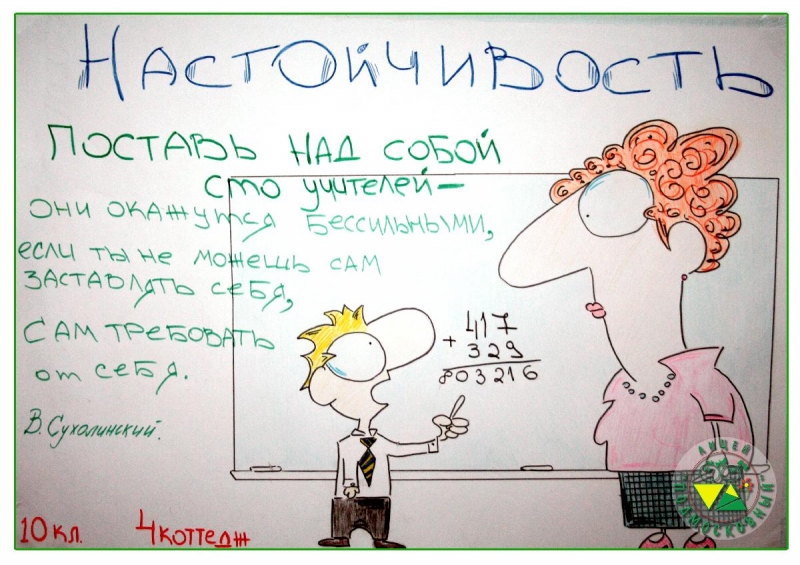 НАСТОЙЧИВОСТЬ
ПОСТАВЬ НАД СОБОЙ
СТО УЧИТЕЛЕЙ –
ОНИ ОКАЖУТСЯ БЕССИЛЬНЫМИ,
если ты не можешь сам
заставлять себя,
сам требовать
от себя.
В. Сухолинский.
417
+ 329
803216
10 кл. 4 коттедж
ЛИЦЕЙ
"ПОДМОСКОВНЫЙ"